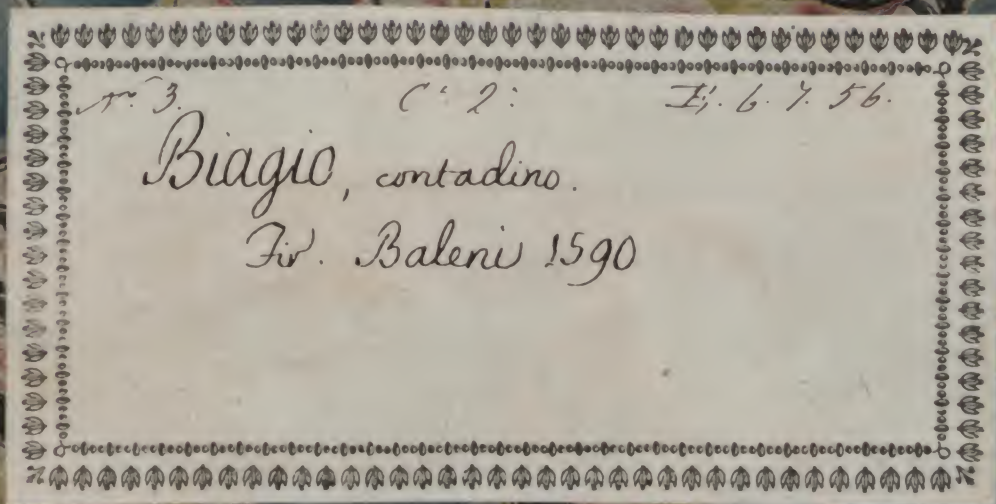 nº 3. Cª 2: E, 6. 7. 56.
Biagio, contadino.
Fir. Baleni 1590